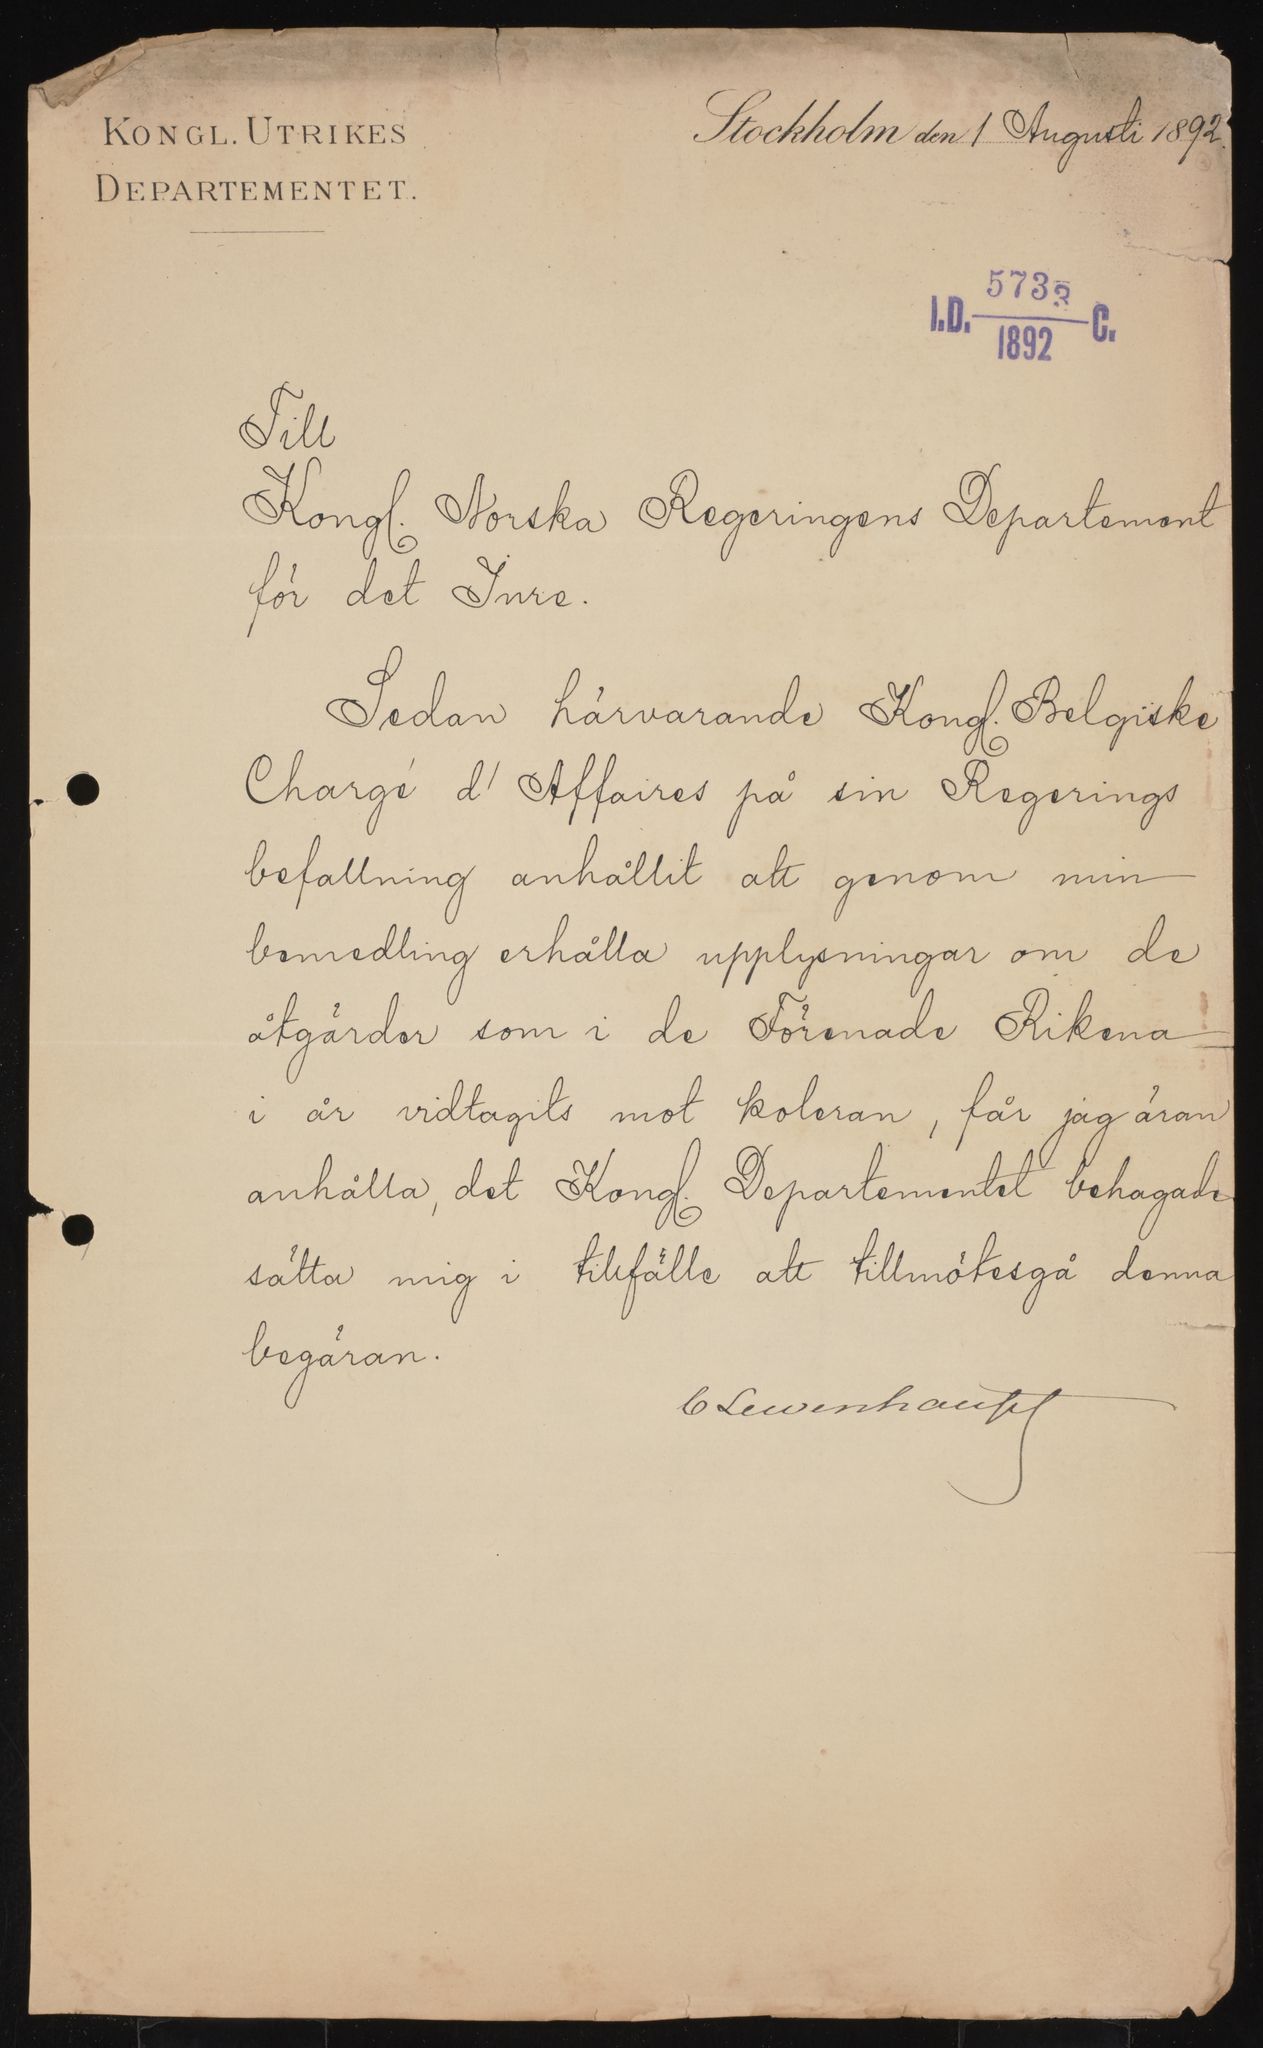 KONGL. UTRIKES
DEPARTEMENTET.
Stockholm den 1 Augusti 1892.
I.D. 5733 C.
1892
Till
Kongl. Norska Regeringens Departement
för det Inre.
Sedan härvarande Kongl. Belgiske
Chargé d'Affaires på sin Regerings
befallning anhållit att genom min
bemedling erhålla upplysningar om de
åtgärder som i de Förenade Rikena
i år vidtagits mot koleran, får jag äran
anhålla, det Kongl. Departementet behagade
sätta mig i tillfälle att tillmötesgå denna
begäran.
C Lewenhaupt